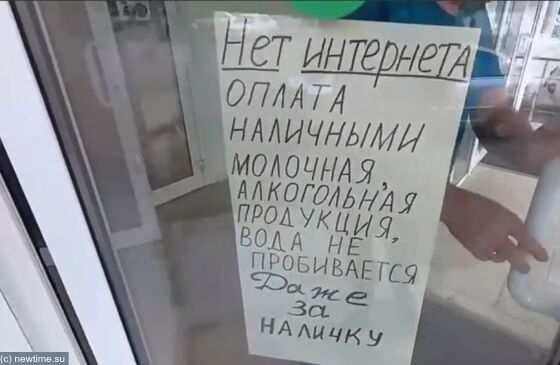 Нет интернета
ОПЛАТА
НАЛИЧНЫМИ
МОЛОЧНАЯ,
АЛКОГОЛЬНАЯ
ПРОДУКЦИЯ,
ВОДА НЕ
ПРОБИВАЕТСЯ
Даже
за
НАЛИЧКУ
(c) newtime.su